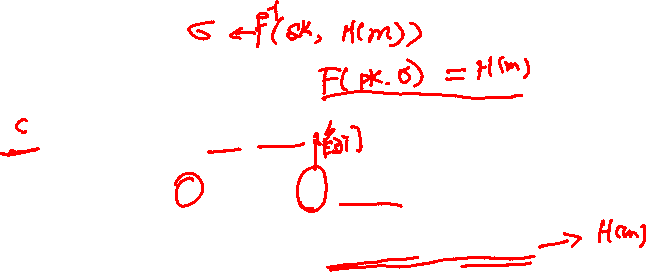 σ ← F⁻¹(sk, H(m))
F(pk.σ) = H(m)
c
H(m)